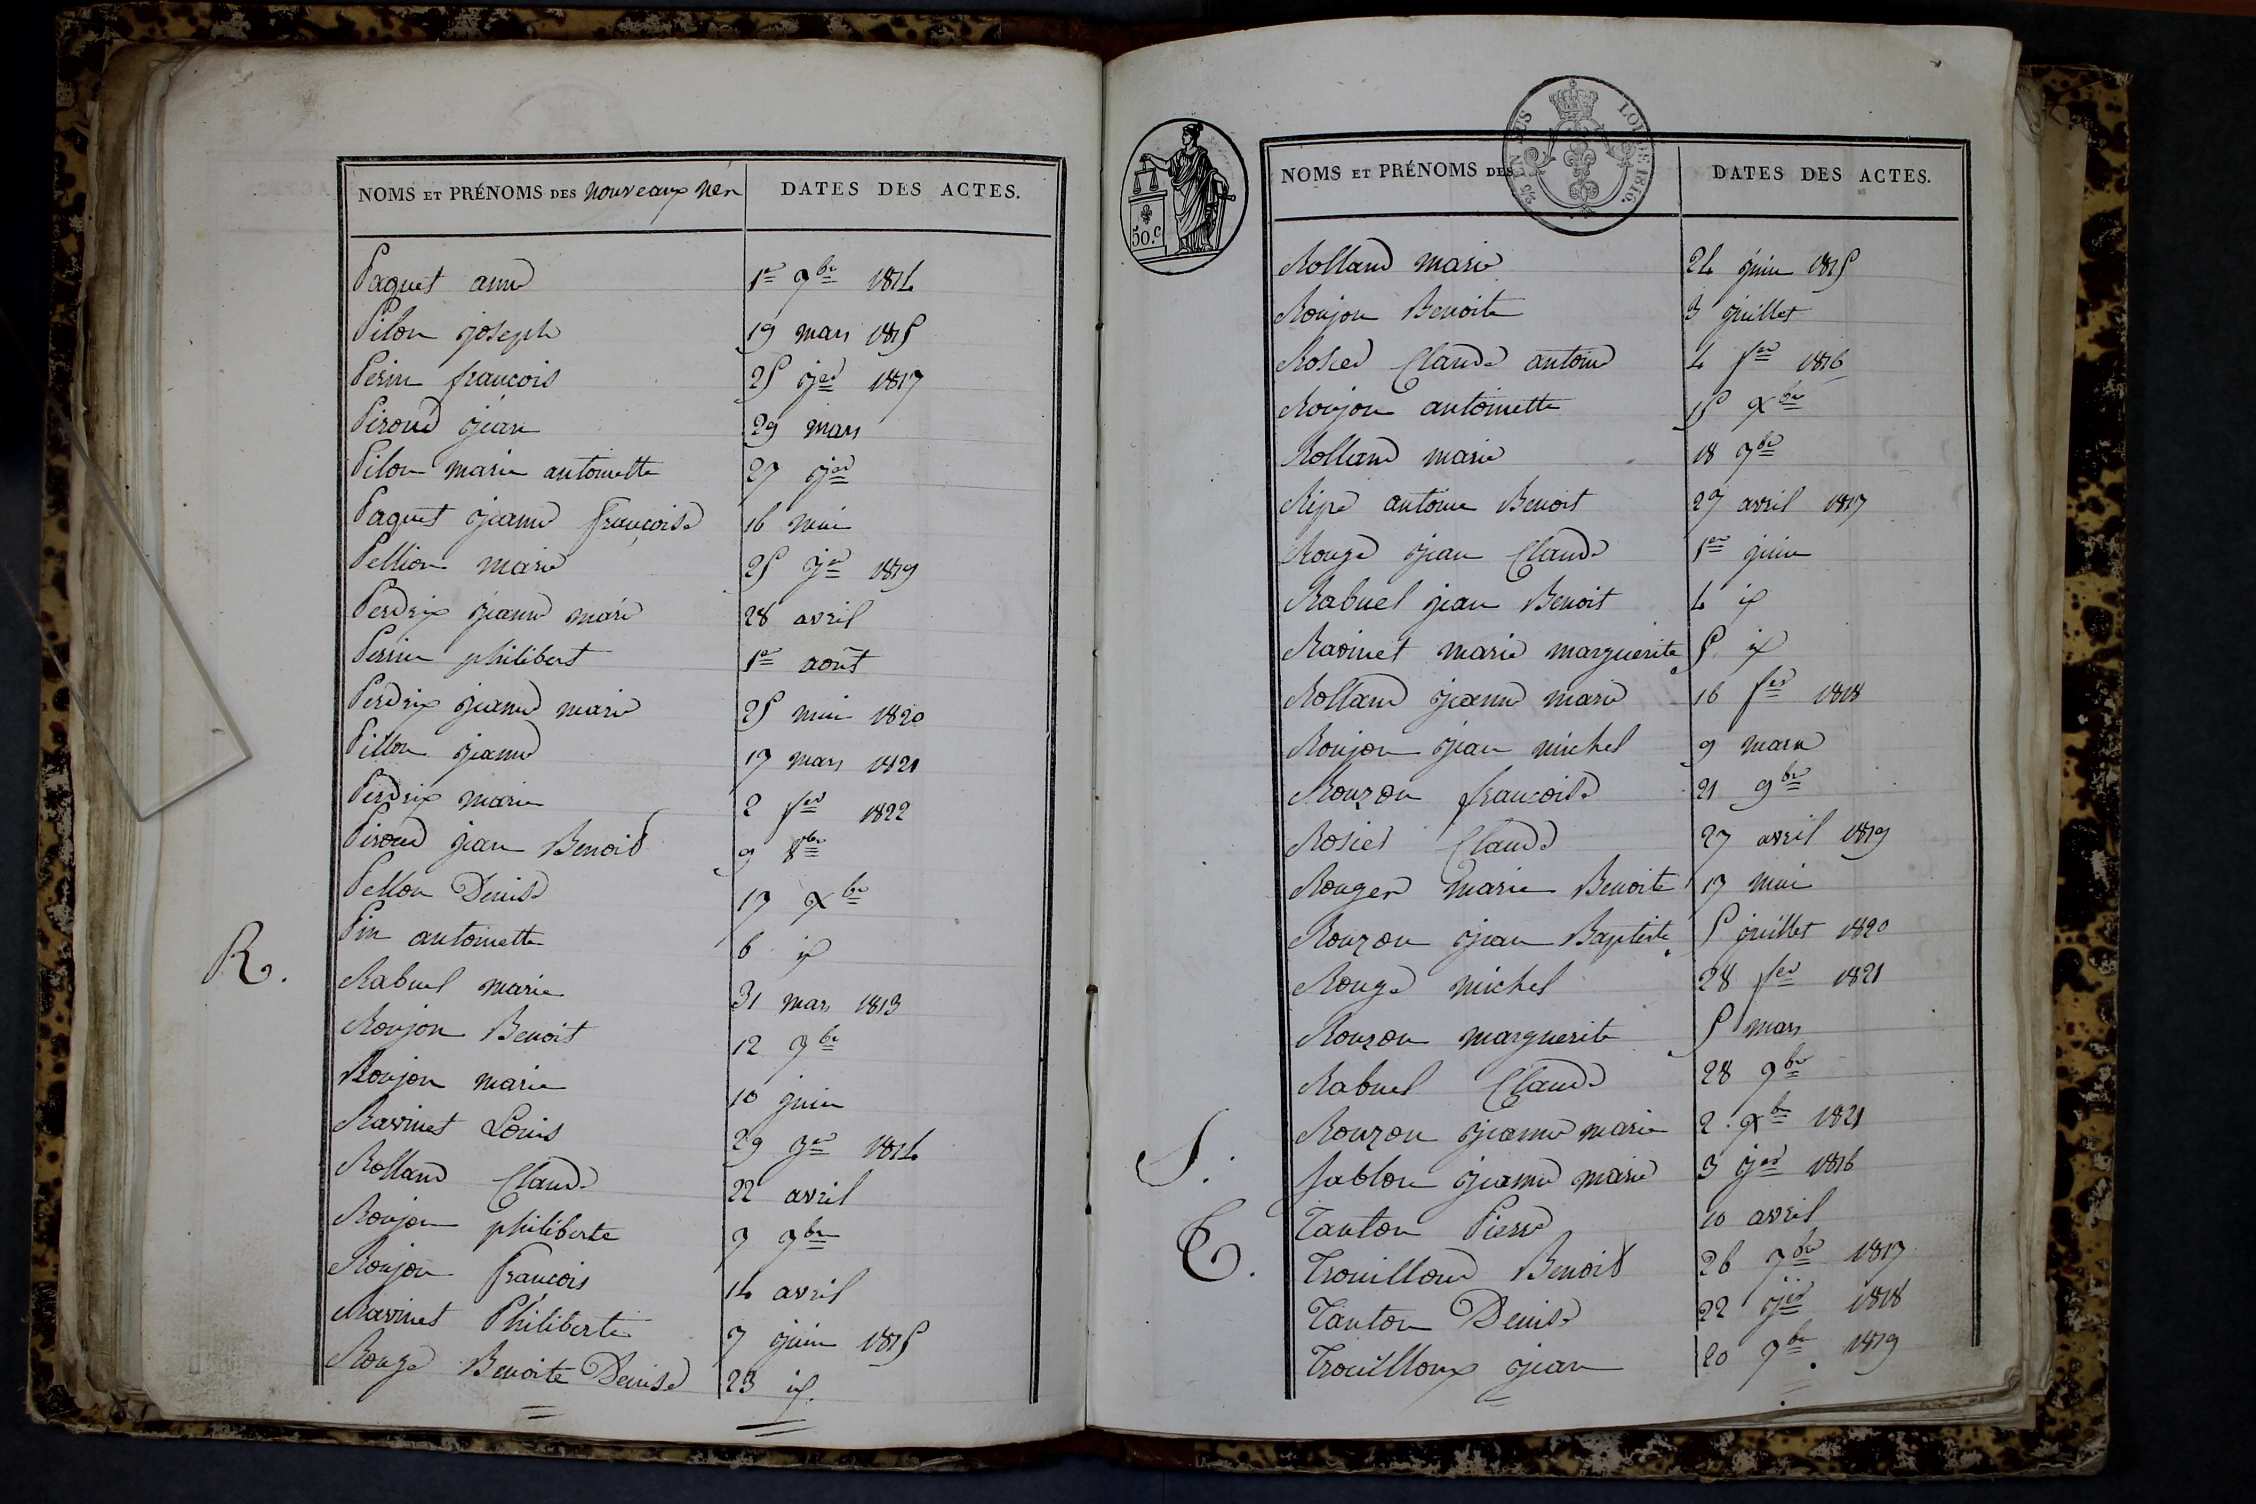 NOMS ET PRÉNOMS DES nouveaux nés DATES DES ACTES.
Paquet anne 1er 9bre 1814
Pilon joseph 19 mars 1815
Perin françois 25 jer 1817
Piroud jean 29 mars
Pilon marie antoinette 27 jer
Paquet jeanne françoise 16 mai
Pellion marie 25 jer 1819
Perdrix jeanne marie 28 avril
Perrin philibert 1er août
Perdrix jeanne marie 25 mai 1820
Pillon jeanne 17 mars 1821
Perdrix marie 2 fer 1822
Piroud jean Benoit 9 8bre
Pellon Denise 17 Xbre
Pin antoinette 6 id
R.
Rabuel marie 31 mars 1813
Roujon Benoit 12 9bre
Roujon marie 10 juin
Ravinet Louis 29 jer 1814
Rolland Claude 22 avril
Roujon philiberte 7 9bre
Roujon françois 14 avril
Ravinet Philiberte 7 juin 1815
Rouge Benoite Denise 23 id.
50.c
NOMS ET PRÉNOMS DES DATES DES ACTES.
25 EN SUS LOI DE 1816.
Rolland marie 24 juin 1815
Roujon Benoite 3 juillet
Rosier Claude antoine 4 fer 1816
Roujon antoinette 15 Xbre
Rolland marie 18 7bre
Ripe antoine Benoit 27 avril 1817
Rouge jean Claude 1er juin
Rabuel jean Benoit 4 id
Ravinet marie marguerite 5 id
Rolland jeanne marie 16 fer 1818
Roujon jean michel 9 mars
Rouzon françoise 21 9bre
Rosier Claude 27 avril 1819
Rouger marie Benoite 17 mai
Rouzon jean Baptiste 5 juillet 1820
Rouge michel 28 fer 1821
Rouzon marguerite 5 mars
Rabuel Claude 28 9bre
Rouzon jeanne marie 2 Xbre 1821
S.
Sablon jeanne marie 3 jer 1816
T.
Tanton Pierre 10 avril
Trouilloud Benoit 26 7bre 1817
Tanton Denise 22 jer 1818
Trouilloux jean 20 9bre 1819